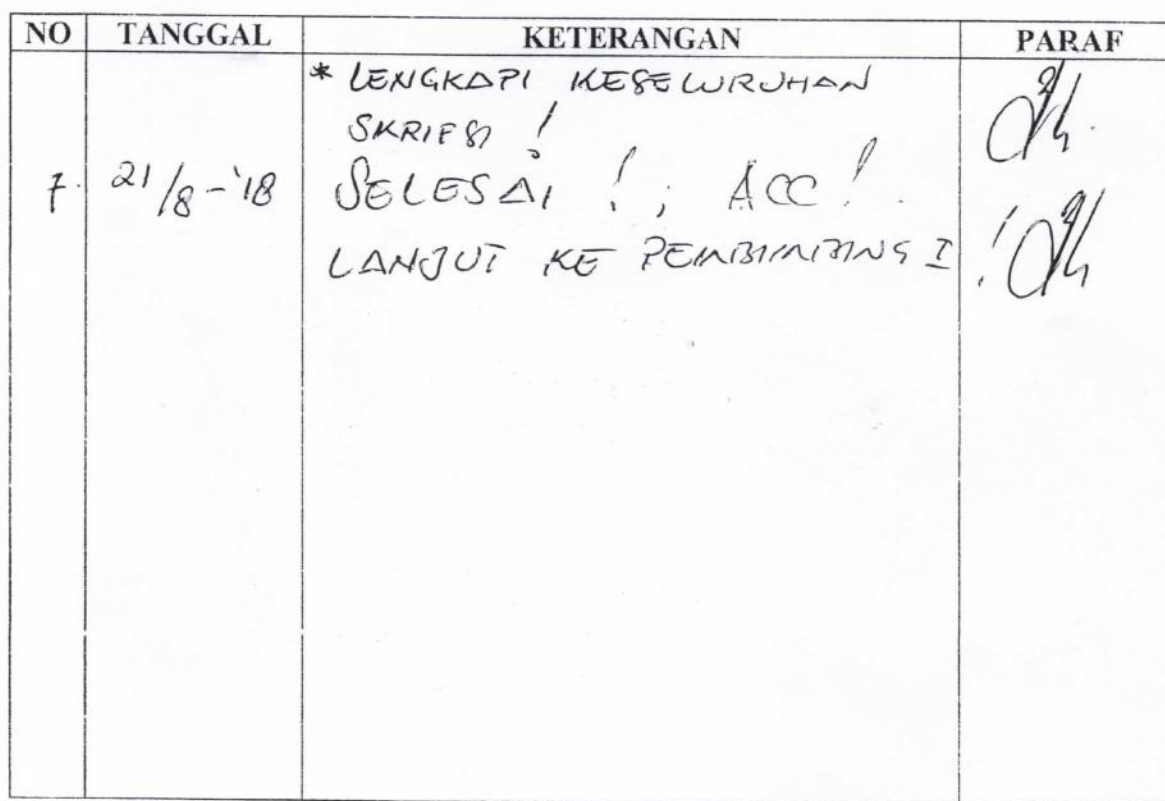 NO TANGGAL KETERANGAN PARAF
* LENGKAPI KESELURUHAN
SKRIPSI !
7. 21/8-'18 SELESAI ! ; ACC !
LANJUT KE PEMBIMBING I !